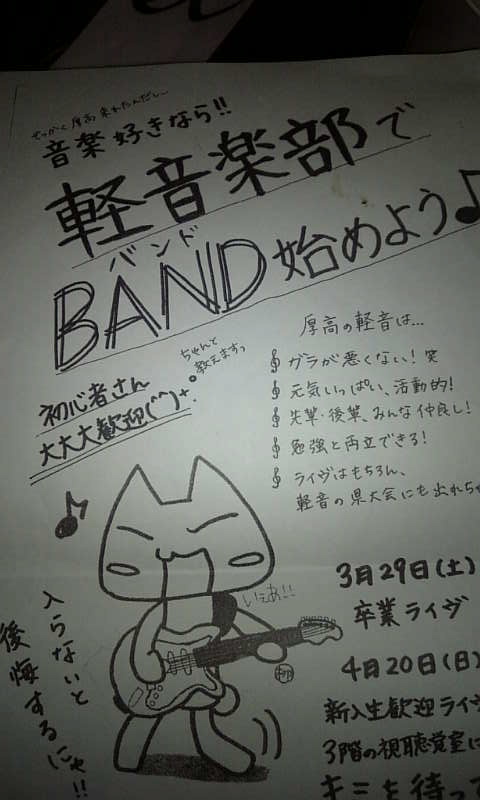 せっかく厚高来れたんだし〜
音楽好きなら!!
軽音楽部で
バンド
BAND始めよう♪
ちゃんと
教えますっ
初心者さん
大大大歓迎(^^)+.
厚高の軽音は...
ガラが悪くない!笑
元気いっぱい、活動的!
先輩・後輩、みんな仲良し!
勉強と両立できる!
ライヴはもちろん、
軽音の県大会にも出れちゃ
いぇあ!!
入らないと
後悔するにゃ!!
3月29日(土)
卒業ライヴ
4月20日(日)
新入生歓迎ライヴ
3階の視聴覚室に
キミを待って